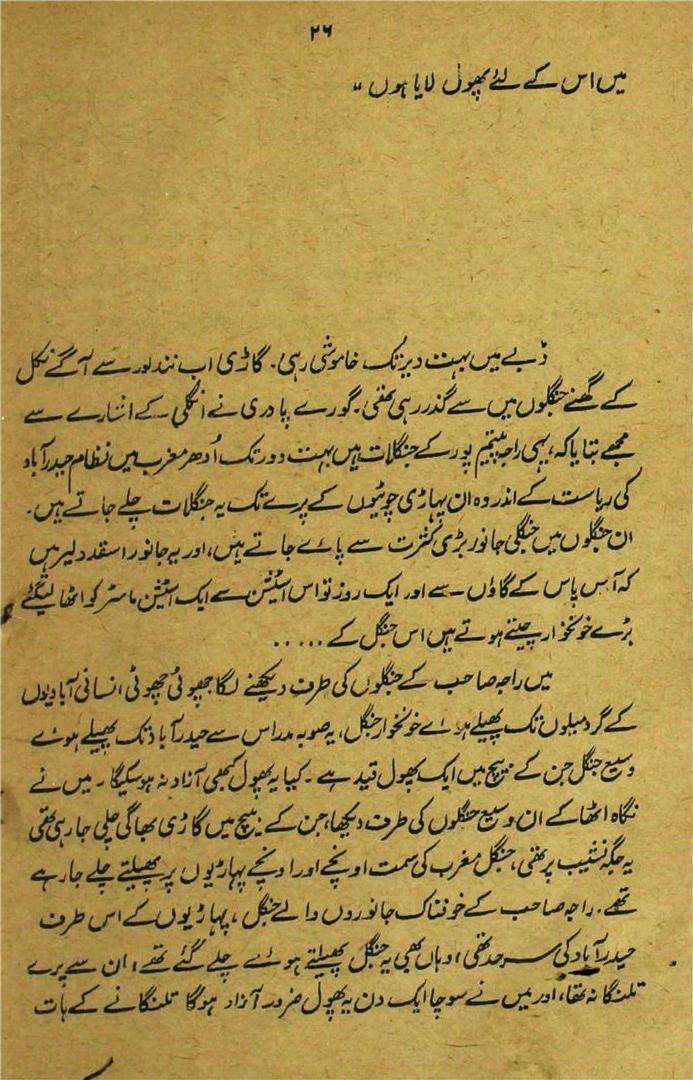 ۲۶
میں اس کے لئے پھول لایا ہوں "
ڈبے میں بہت دیر تک خاموشی رہی۔ گاڑی اب نندلور سے آگے نکل
کے گھنے جنگلوں میں سے گذر رہی تھی۔ گورے پادری نے انگلی کے اشارے سے
مجھے بتایا کہ، یہی راجہ پیتم پور کے جنگلات ہیں بہت دور تک اُدھر مغرب میں نظام حیدرآباد
کی ریاست کے اندر وہ ان پہاڑی چوٹیوں کے پرے تک یہ جنگلات چلے جاتے ہیں۔
ان جنگلوں میں جنگلی جانور بڑی کثرت سے پائے جاتے ہیں، اور یہ جانور اسقدر دلیر ہیں
کہ آس پاس کے گاؤں سے اور ایک روز تو اس اسٹیشن سے ایک اسٹیشن ماسٹر کو اٹھا لیگئے
بڑے خونخوار چیتے ہوتے ہیں اس جنگل کے .....
میں راجہ صاحب کے جنگلوں کی طرف دیکھنے لگا چھوٹی چھوٹی انسانی آبادیوں
کے گرد میلوں تک پھیلے ہوئے خونخوار جنگل، یہ صوبہ مدراس سے حیدرآباد تک پھیلے ہوئے
وسیع جنگل جن کے بیچ میں ایک پھول قید ہے۔ کیا یہ پھول کبھی آزاد نہ ہو سکیگا۔ میں نے
نگاہ اٹھا کے ان وسیع جنگلوں کی طرف دیکھا، جن کے بیچ میں گاڑی بھاگی چلی جا رہی تھی
یہ جگہ نشیب پر تھی، جنگل مغرب کی سمت اونچے اور اونچے پہاڑیوں پر پھیلتے چلے جا رہے
تھے۔ راجہ صاحب کے خوفناک جانوروں والے جنگل، پہاڑیوں کے اس طرف
حیدرآباد کی سرحد تھی، وہاں بھی یہ جنگل پھیلتے ہوئے چلے گئے تھے، ان سے پرے
تلنگانہ تھا، اور میں نے سوچا ایک دن یہ پھول ضرور آزاد ہوگا تلنگانے کے ہات